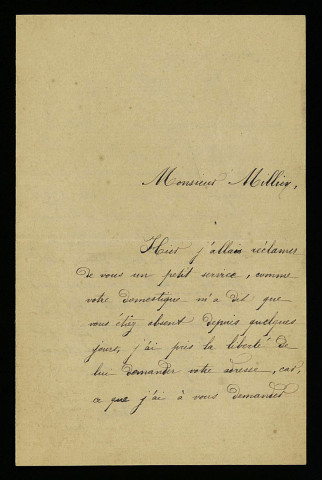 Monsieur Milliex,
Hier j'allais réclamer
de vous un petit service, comme
votre domestique m'a dit que
vous étiez absent depuis quelques
jours, j'ai pris la liberté de
lui demander votre adresse, car,
ce que j'ai à vous demander